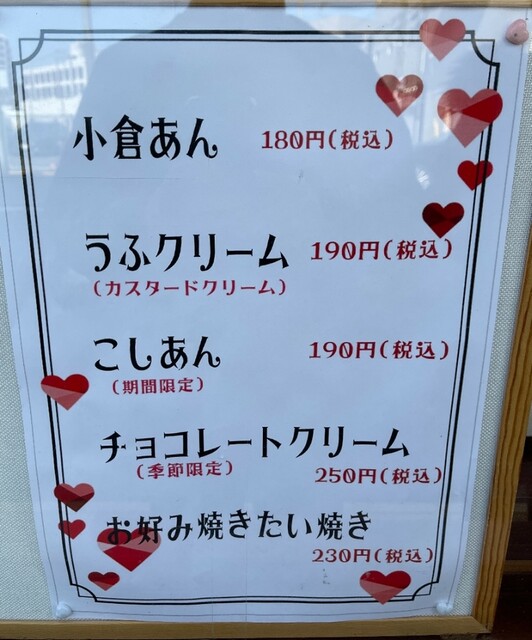 小倉あん 180円(税込)
うふクリーム 190円(税込)
(カスタードクリーム)
こしあん 190円(税込)
(期間限定)
チョコレートクリーム
(季節限定) 250円(税込)
お好み焼きたい焼き
230円(税込)